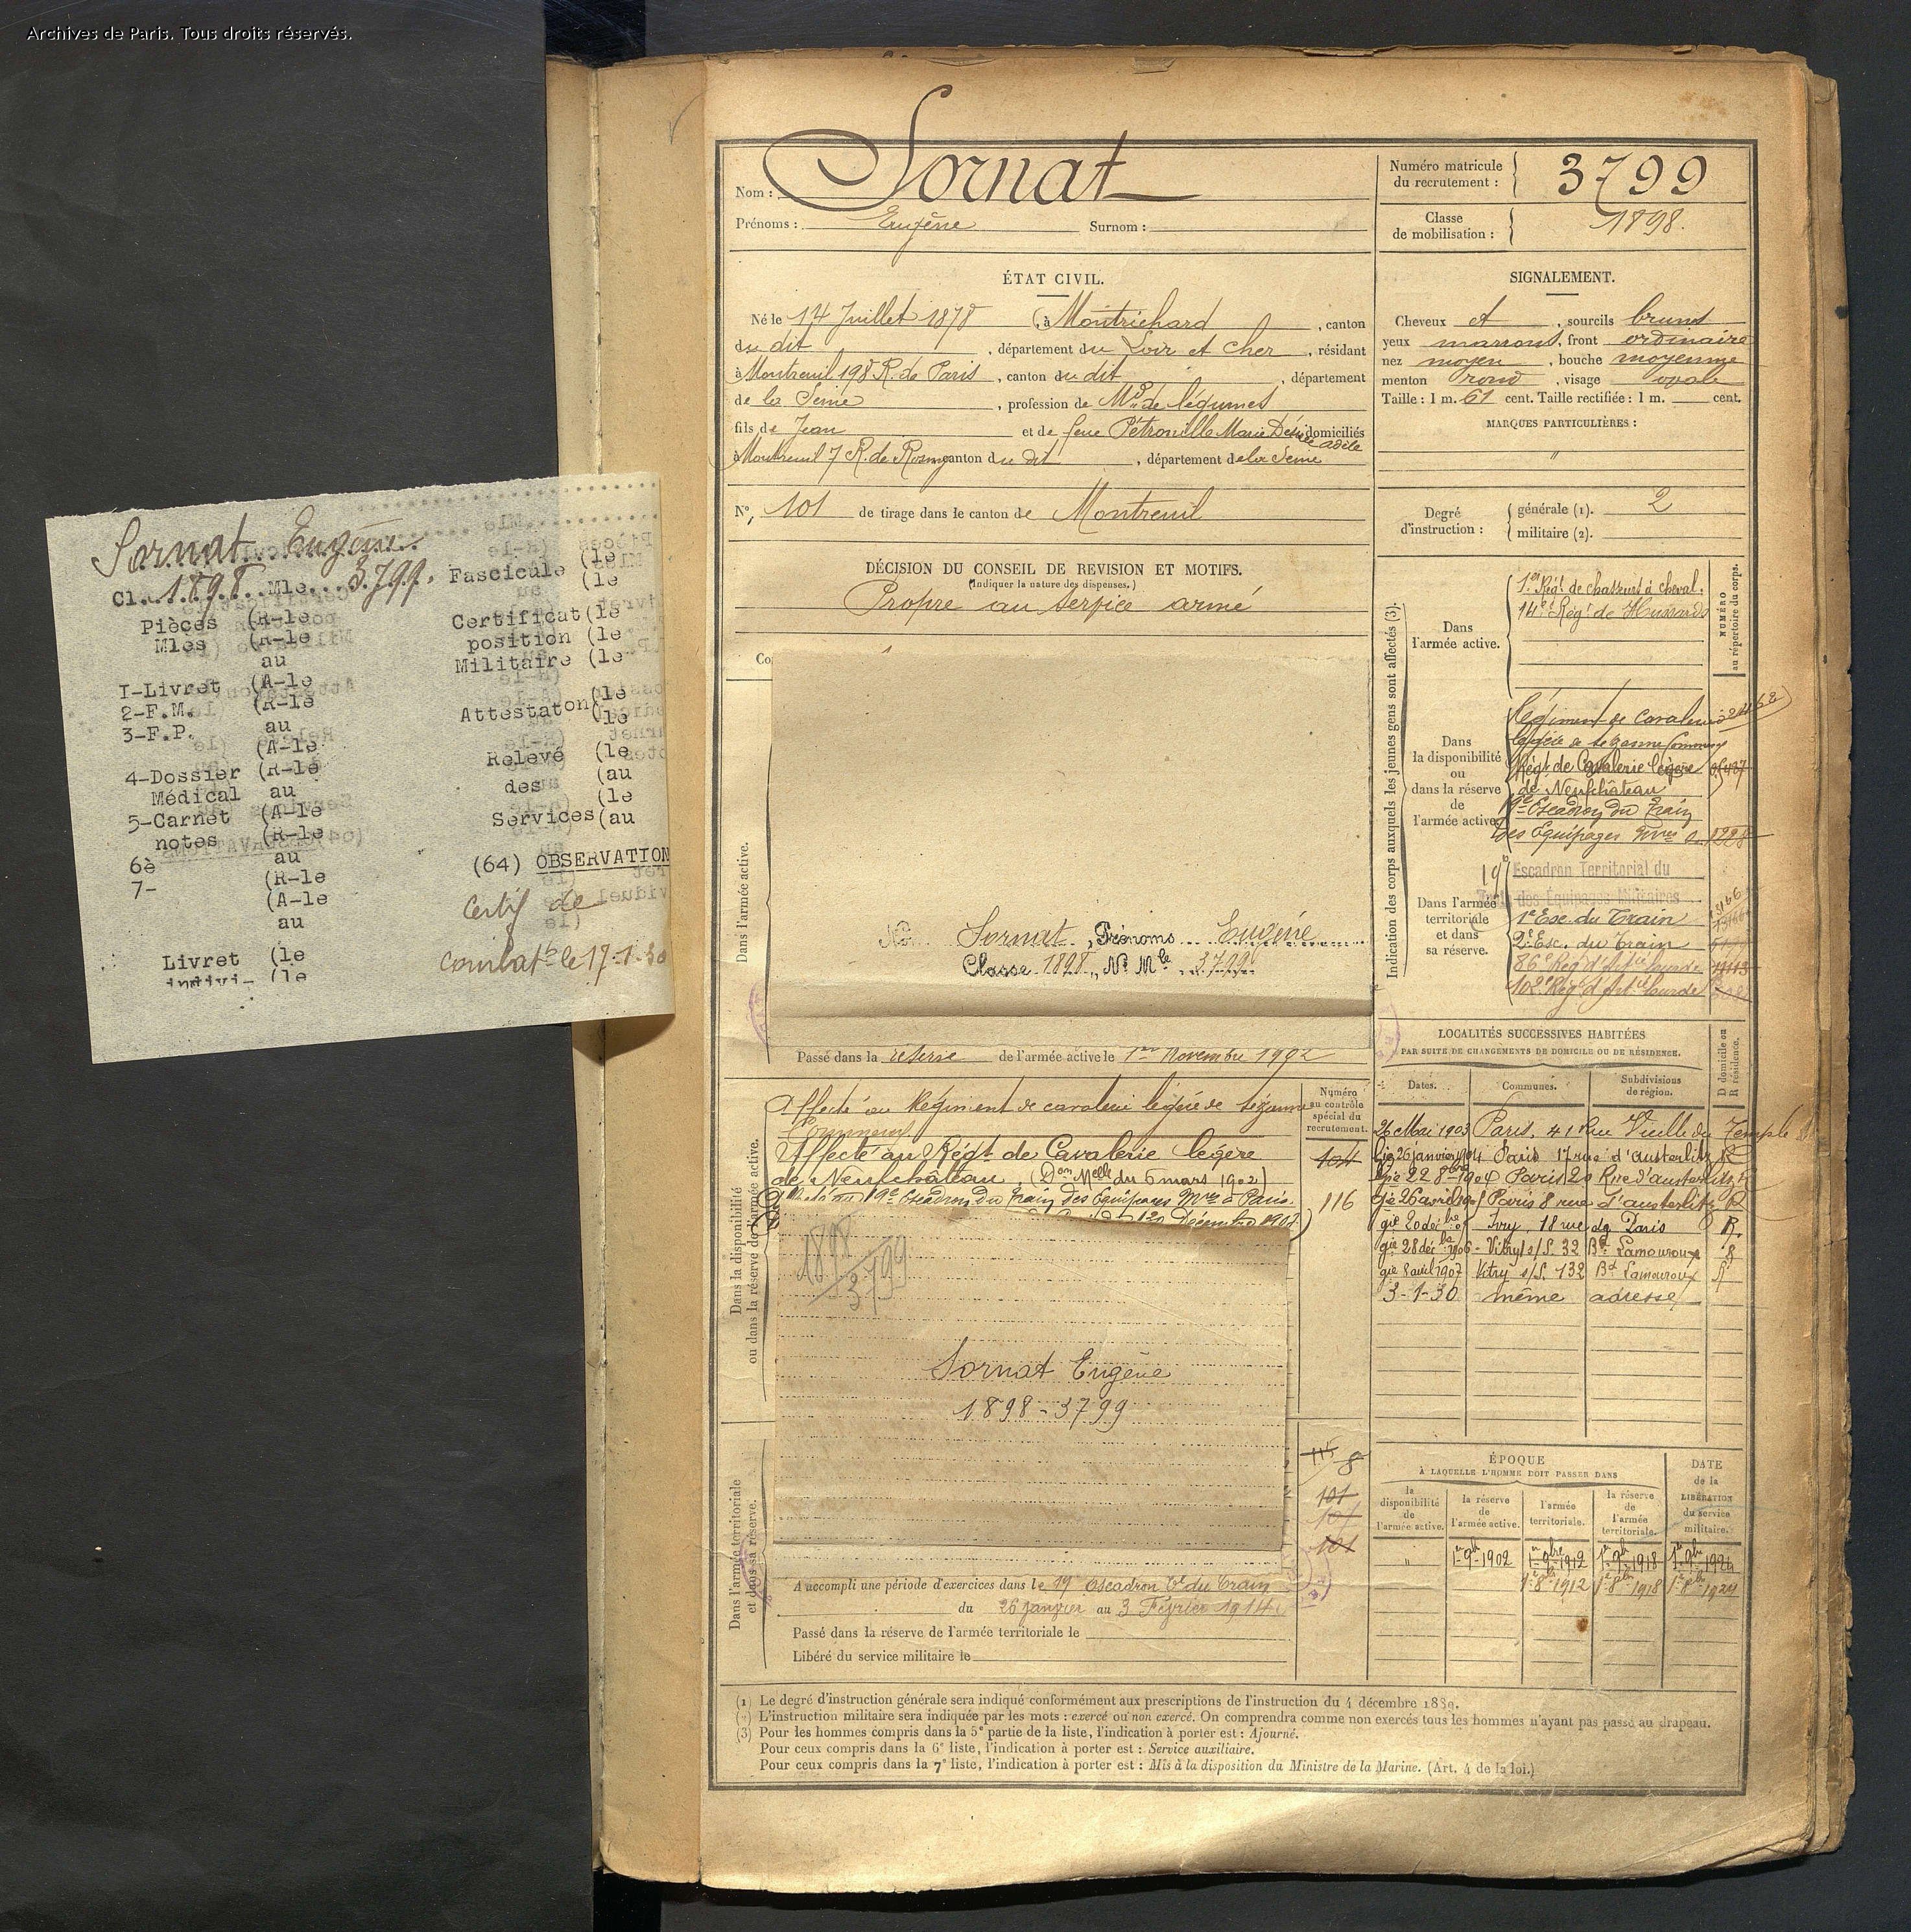 Archives de Paris. Tous droits réservés.
Sornat Eugène
Cl. 1898. Mle. 3799. Fascicule (le
(le
Pièces (R-le
Mles (R-le
au
Certificat (le
position (le
Militaire (le
1-Livret (A-le
2-F.M. (R-le
3-F.P. au
(A-le
Attestaton (le
(le
4-Dossier (R-le
Médical au
5-Carnet (A-le
notes (R-le
Relevé (le
des (au
(le
Services (au
6è au
7- (R-le
(A-le
au
(64) OBSERVATION
Certif de
combatt le 17-1-30
Livret (le
indivi- (le
Nom : Sornat
Prénoms : Eugène Surnom :
Numéro matricule du recrutement : 3799
Classe de mobilisation : 1898.
ÉTAT CIVIL.
Né le 14 Juillet 1878 , à Montrichard , canton
du dit , département du Loir et Cher , résidant
à Montreuil 198 R. de Paris , canton du dit , département
de la Seine , profession de Md de légumes
fils de Jean et de feue Pétronille Marie Désirée Adèle domiciliés
à Montreuil 7 R. de Rosny canton du dit , département de la Seine
N°, 101 de tirage dans le canton de Montreuil
SIGNALEMENT.
Cheveux et , sourcils bruns
yeux marrons, front ordinaire
nez moyen , bouche moyenne
menton rond , visage ovale
Taille : 1 m. 61 cent. Taille rectifiée : 1 m. cent.
MARQUES PARTICULIÈRES :
"
Degré d'instruction : générale (1). 2
militaire (2).
DÉCISION DU CONSEIL DE REVISION ET MOTIFS.
(Indiquer la nature des dispenses.)
Propre au service armé
Co
Dans l'armée active.
Nom Sornat , Prénoms Eugène
Classe 1898 , N° Mle 3799
Passé dans la réserve de l'armée active le 1er Novembre 1902
Indication des corps auxquels les jeunes gens sont affectés (3).
NUMÉRO au répertoire du corps.
Dans l'armée active.
1er Régt de chasseurs à cheval.
14e Régt de Hussards
Dans la disponibilité ou dans la réserve de l'armée active
Régiment de Cavalerie
légère de Sézanne
Régt de Cavalerie légère
de Neufchâteau
19e Escadron du Train
des Équipages Mres 1228
Dans l'armée territoriale et dans sa réserve.
19e Escadron Territorial du
Train des Équipages Militaires
1er Esc. du Train
2e Esc. du Train
86e Régt d'Artie lourde
102e Régt d'Artie lourde
Dans la disponibilité ou dans la réserve de l'armée active.
Affecté au Régiment de cavalerie légère de Sézanne
Affecté au Régt de Cavalerie légère
de Neufchâteau. (Don Melle du 6 mars 1902)
19e Escadron du Train des Équipages Mres à Paris.
Décembre 1907
Numéro au contrôle spécial du recrutement.
104
116
1898
3799
Sornat Eugène
1898-3799
LOCALITÉS SUCCESSIVES HABITÉES
PAR SUITE DE CHANGEMENTS DE DOMICILE OU DE RÉSIDENCE.
Dates. Communes. Subdivisions de région. D domicile ou R résidence.
26 Mai 1903 Paris. 41 Rue Vieille du Temple
gie 26 janvier 1904 Paris 17 rue d'austerlitz R
Paris 20 Rue d'austerlitz R
gie 26 avril Paris 8 rue d'austerlitz R
gie 20 déc bre Ivry, 18 rue de Paris R.
gie 28 déc bre 1906 - Vitry s/S. 32 Bd Lamouroux
gie 8 avril 1907 Vitry s/S. 132 Bd Lamouroux R
3-1-30 même adresse
Dans l'armée territoriale et dans sa réserve.
115 8
101
101
101
A accompli une période d'exercices dans le 19e escadron Tal du Train
du 26 janvier au 3 Février 1914.
Passé dans la réserve de l'armée territoriale le
Libéré du service militaire le
ÉPOQUE
À LAQUELLE L'HOMME DOIT PASSER DANS
la disponibilité de l'armée active. la réserve de l'armée active. l'armée territoriale. la réserve de l'armée territoriale.
DATE de la LIBÉRATION du service militaire.
" 1er 9bre 1902 1er 9bre 1912 1er 9bre 1918 1er 9bre 1924
1er 8bre 1912 1er 8bre 1918 1er 8bre 1924
(1) Le degré d'instruction générale sera indiqué conformément aux prescriptions de l'instruction du 4 décembre 1889.
(2) L'instruction militaire sera indiquée par les mots : exercé ou non exercé. On comprendra comme non exercés tous les hommes n'ayant pas passé au drapeau.
(3) Pour les hommes compris dans la 5e partie de la liste, l'indication à porter est : Ajourné.
Pour ceux compris dans la 6e liste, l'indication à porter est : Service auxiliaire.
Pour ceux compris dans la 7e liste, l'indication à porter est : Mis à la disposition du Ministre de la Marine. (Art. 4 de la loi.)